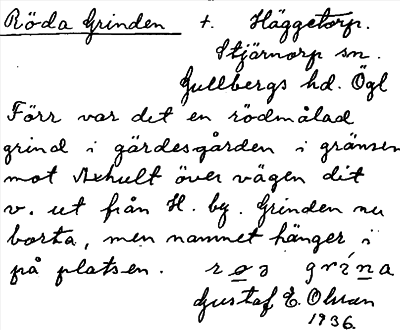 Röda Grinden t. Häggetorp.
Stjärnorp sn.
Gullbergs hd. Ögl
Förr var det en rödmålad
grind i gärdesgården i gränsen
mot Axhult över vägen dit
v. ut från H. by. Grinden nu
borta, men namnet hänger i
på platsen. røɜ grína
Gustaf E. Olsson
1936.